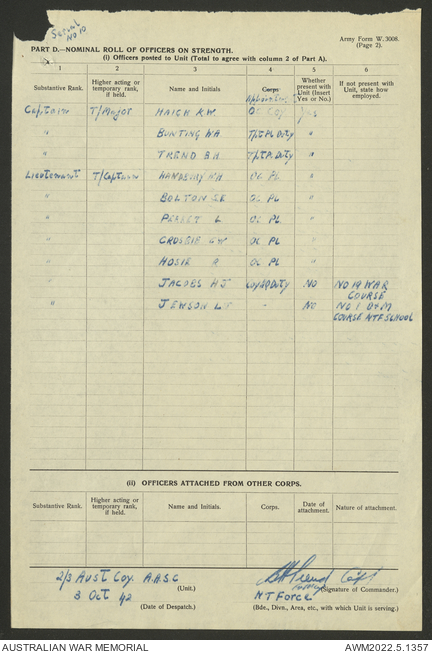 Serial
No 10
Army Form W. 3008.
(Page 2).
PART D.—NOMINAL ROLL OF OFFICERS ON STRENGTH.
(i) Officers posted to Unit (Total to agree with column 2 of Part A).
1 2 3 4 5 6
Substantive Rank. Higher acting or temporary rank, if held. Name and Initials. Corps Whether present with Unit (Insert Yes or No.) If not present with Unit, state how employed.
Captain T/Major HAIGH R.W. OC Coy yes
" BUNTING WA Duty "
" TREND B.A. Duty "
Lieutenant T/Captain H.H OC PL "
" BOLTON OC PL "
" L OC PL "
" CROSBIE GW OC PL "
" HOSIE R OC PL "
" JACOBS HJ Duty NO NO 19 WAR
COURSE
" JEWSON L - NO NO 1
COURSE NTF SCHOOL
(ii) OFFICERS ATTACHED FROM OTHER CORPS.
Substantive Rank. Higher acting or temporary rank, if held. Name and Initials. Corps. Date of attachment. Nature of attachment.
2/3 Aust Coy. A.A.S.C (Unit.)
Trend Capt (Signature of Commander.)
3 Oct 42 (Date of Despatch.)
NT Force
(Bde., Divn., Area, etc., with which Unit is serving.)
AUSTRALIAN WAR MEMORIAL AWM2022.5.1357